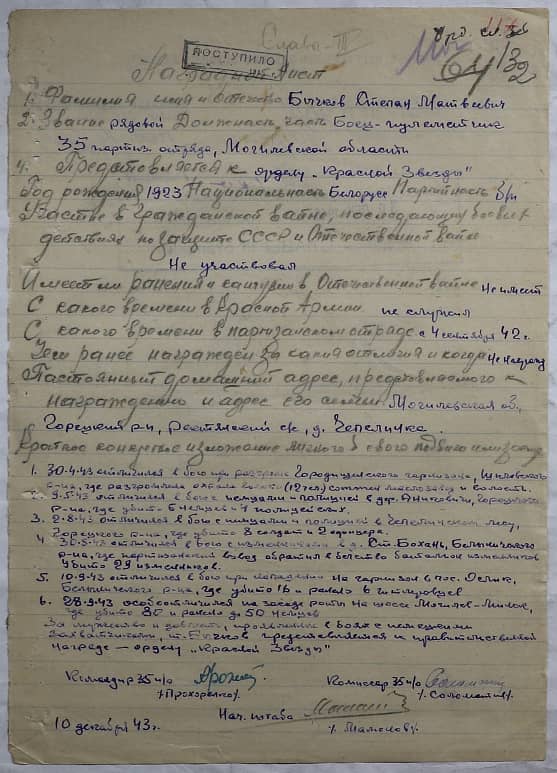 Слава-III
ПОСТУПИЛО
64/32
Наградной лист
1. Фамилия имя и отчество Бычков Степан Матвеевич
2. Звание рядовой Должность, часть Боец-пулеметчик
35 партиз. отряда, Могилевской области
4. Представляется к ордену „Красной Звезды"
Год рождения 1923 Национальность Белорус Партийность б/п
Участие в гражданской войне, последующих боевых
действиях по защите СССР и Отечественной войне
Не участвовал
Имеет ли ранения и контузии в Отечественной войне Не имеет
С какого времени в Красной Армии не служил
С какого времени в партизанском отряде с 4 сентября 42 г.
Чем ранее награжден за какие отличия и когда
Постоянный домашний адрес, представляемого к
награждению и адрес его семьи Могилевская об.,
Горецкий р-н, с/с, д. Чепелинка.
Краткое конкретное изложение личного боевого подвига или заслуг
1. 30.4.43 отличился в бою при разгроме гарнизона,
р-на, где
2. 9.5.43 отличился в бою с немцами и полицией в дер. Аниковичи, Горецкого
р-на, где убит 6 немцев и 7 полицейских.
3. 2.8.43 отличился в бою с немцами и полицией в Чепелинском лесу,
Горецкого р-на, где убито 8 солдат и 2 офицера.
4. отличился в бою с изменниками в д. Ст. Бохань, Белыничского
р-на, где партизанский взвод обратил в бегство батальон изменников
убито 29 изменников.
5. 10.9.43 отличился в бою при нападении на гарнизон в пос.
Белыничского р-на, где убито 16 и ранено 6 гитлеровцев
6. 28.9.43 особо отличился на засаде роты на шоссе Могилев-Минск,
где убито и ранено до 50 немцев
За мужество и доблесть, проявленные в боях с немецкими
захватчиками, т. Бычков представляется к правительственной
награде — ордену „Красной Звезды"
Командир 35 п/о Комиссар 35 п/о
/Прохоренко/ /Соломатин/
Нач. штаба
/Мамонов/
10 декабря 43 г.